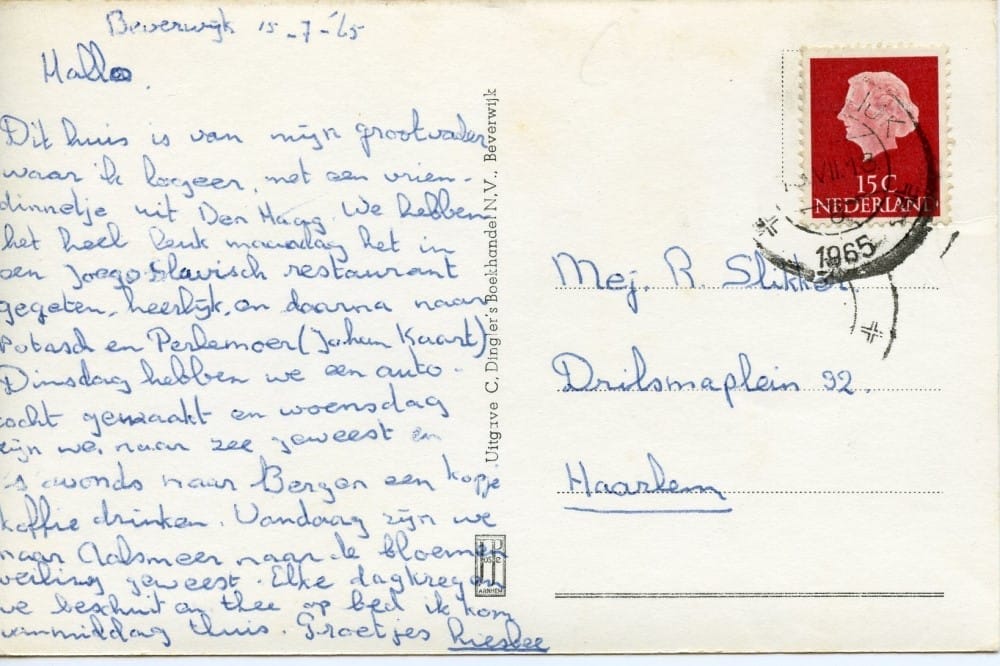 Beverwijk 15-7-'65
Hallo.
Dit huis is van mijn grootvader
waar ik logeer, met een vrien-
dinnetje uit Den Haag. We hebben
het heel leuk maandag het in
een Joego-Slavisch restaurant
gegeten, heerlijk, en daarna naar
Potasch en Perlemoer (Johan Kaart)
Dinsdag hebben we een auto-
tocht gemaakt en woensdag
zijn we naar zee geweest en
's avonds naar Bergen een kopje
koffie drinken. Vandaag zijn we
naar Aalsmeer naar de bloemen
veiling geweest. Elke dag kregen
we beschuit en thee op bed ik kom
vanmiddag thuis. Groetjes Liesbee
Uitgave C. Dingler's Boekhandel N.V., Beverwijk
JP
ARNHEM
15 C
NEDERLAND
1965
Mej. R. Slikker
Drilsmaplein 92.
Haarlem